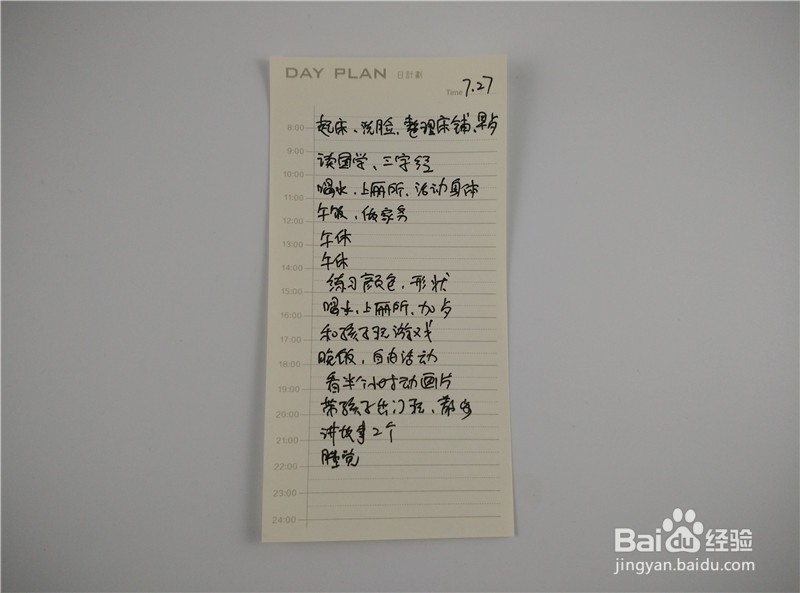 DAY PLAN 日計劃
Time 7.27
8:00 起床、洗脸、整理床铺、早点
9:00
10:00 读国学、三字经
11:00 喝水、上厕所、活动身体
12:00 午饭、做家务
13:00 午休
14:00 午休
15:00 练习颜色、形状
16:00 喝水、上厕所、加点
17:00 和孩子玩游戏
18:00 晚饭、自由活动
19:00 看半个小时动画片
20:00 带孩子出门玩、散步
21:00 讲故事2个
22:00 睡觉
23:00
24:00
Baidu经验
jingyan.baidu.com